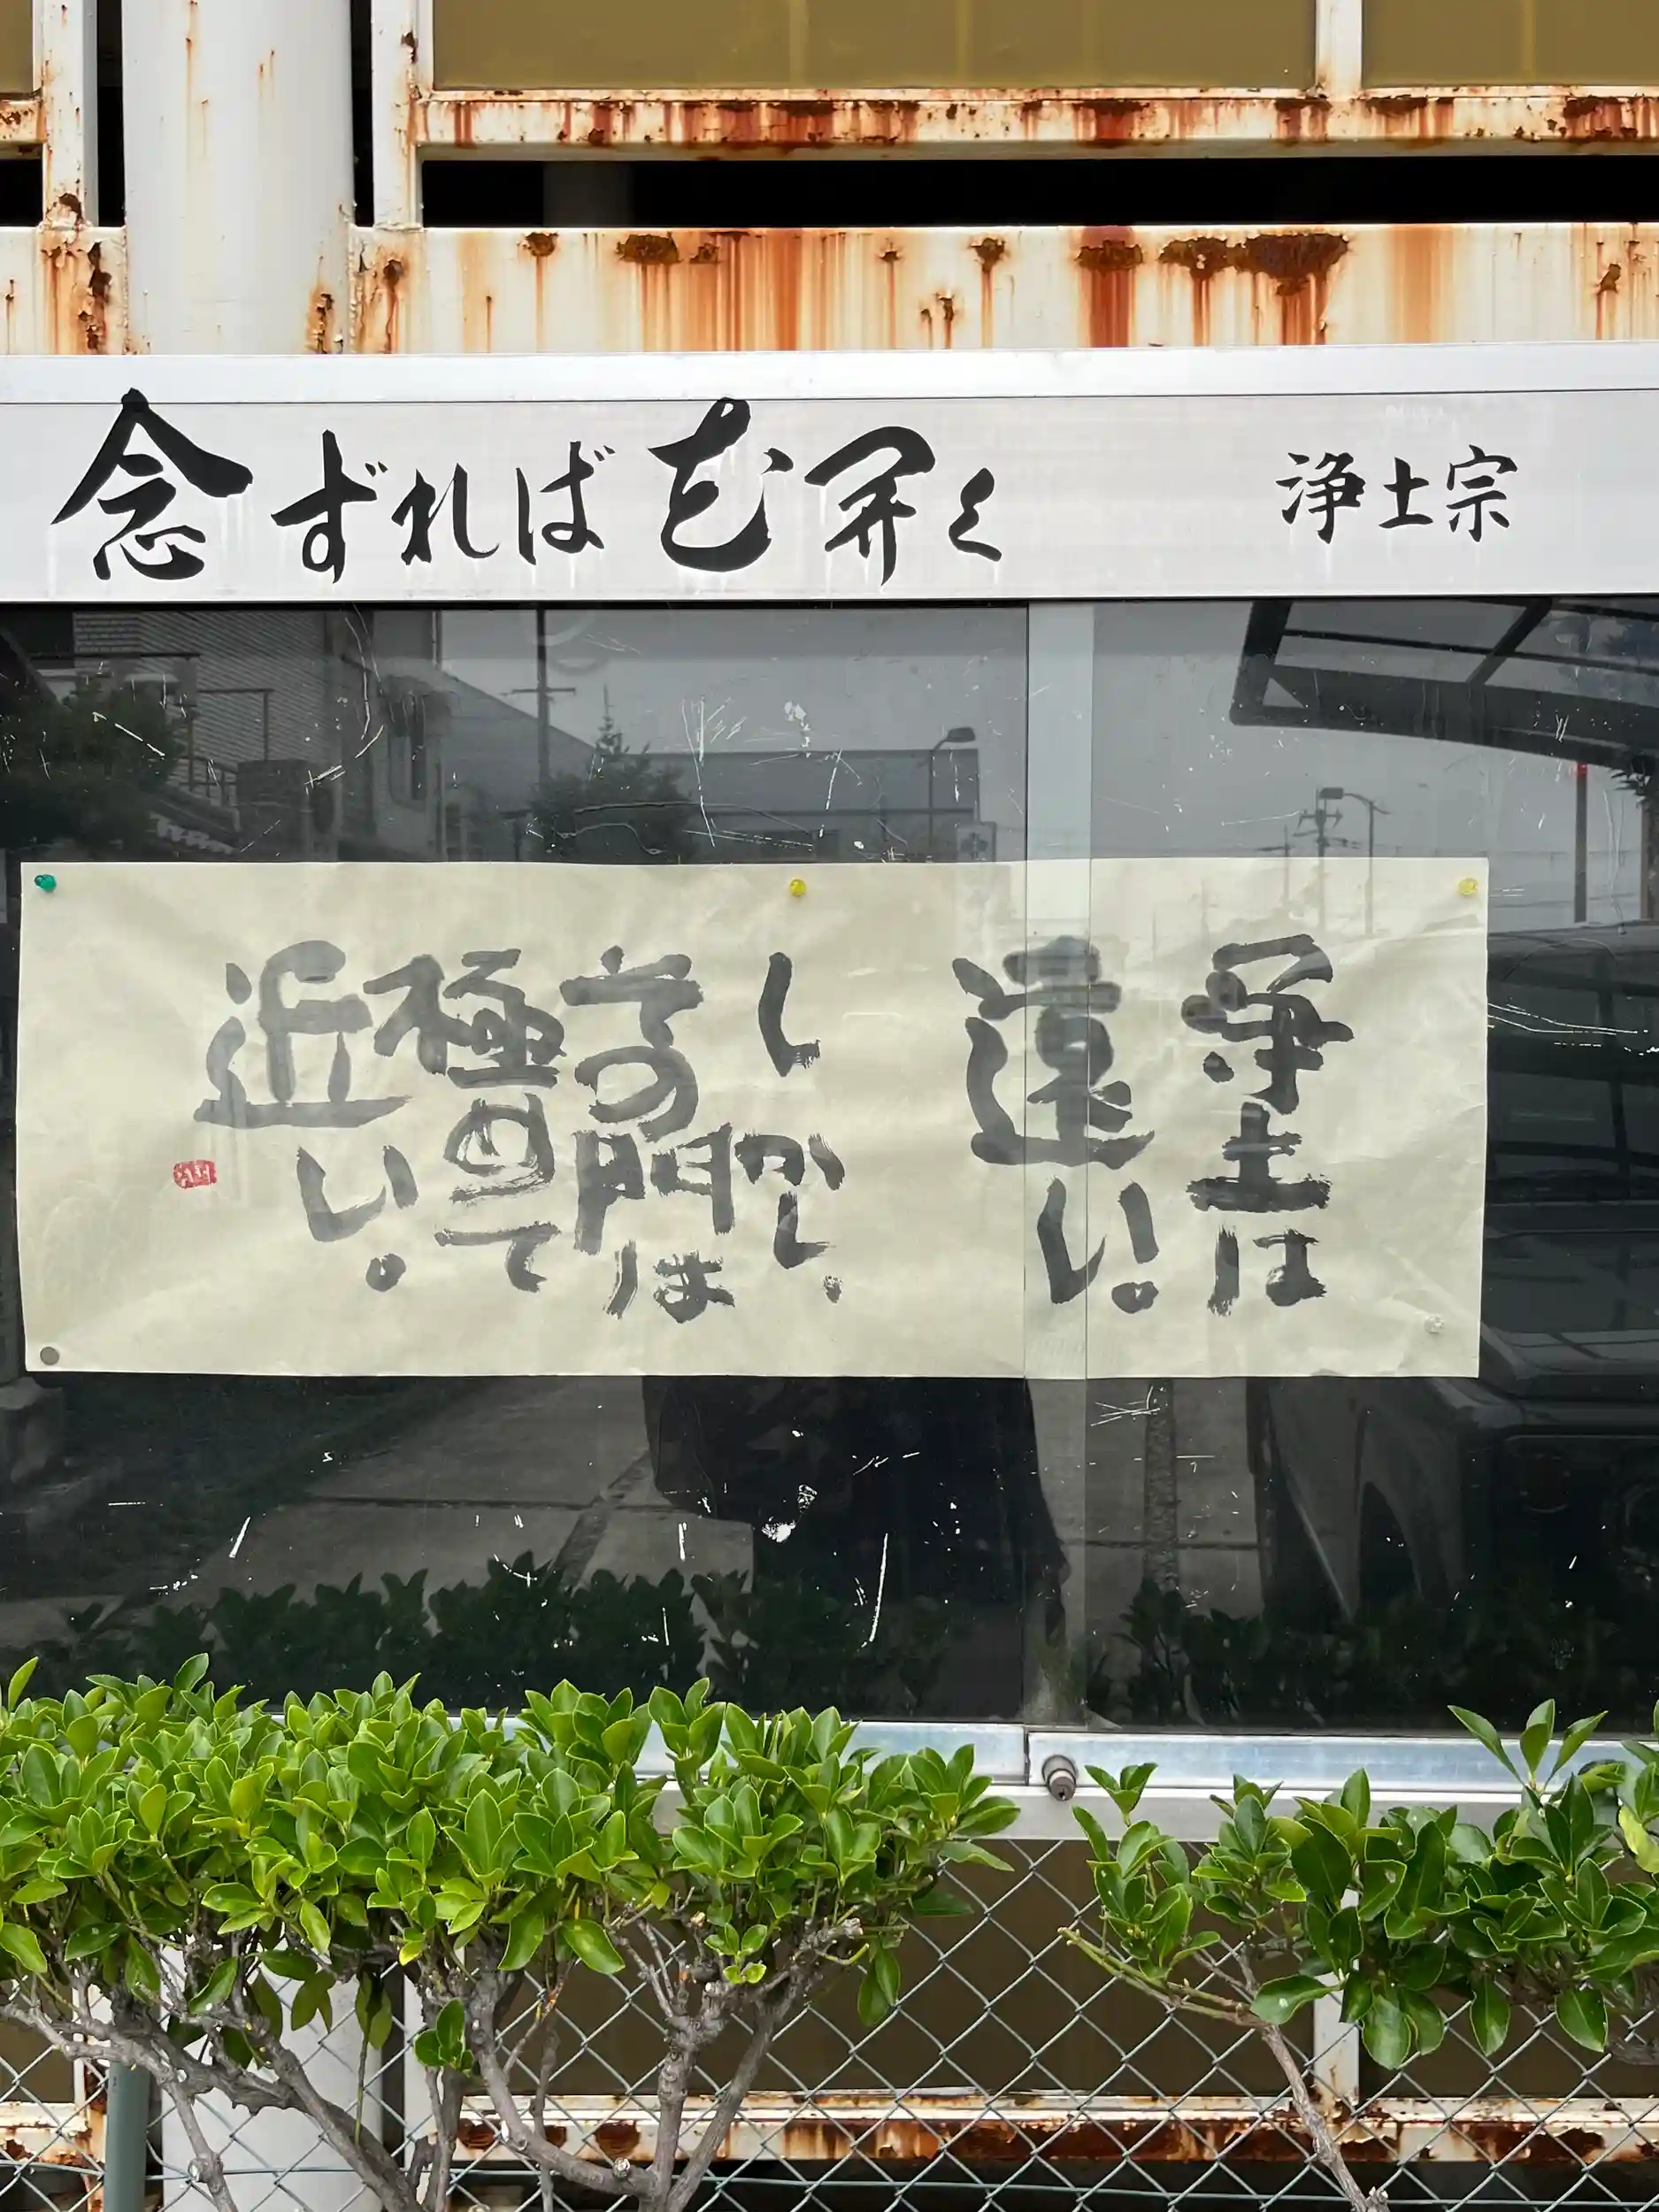 念ずれば花開く 浄土宗
浄土は
遠い。
しかし、
その門は
極めて
近い。